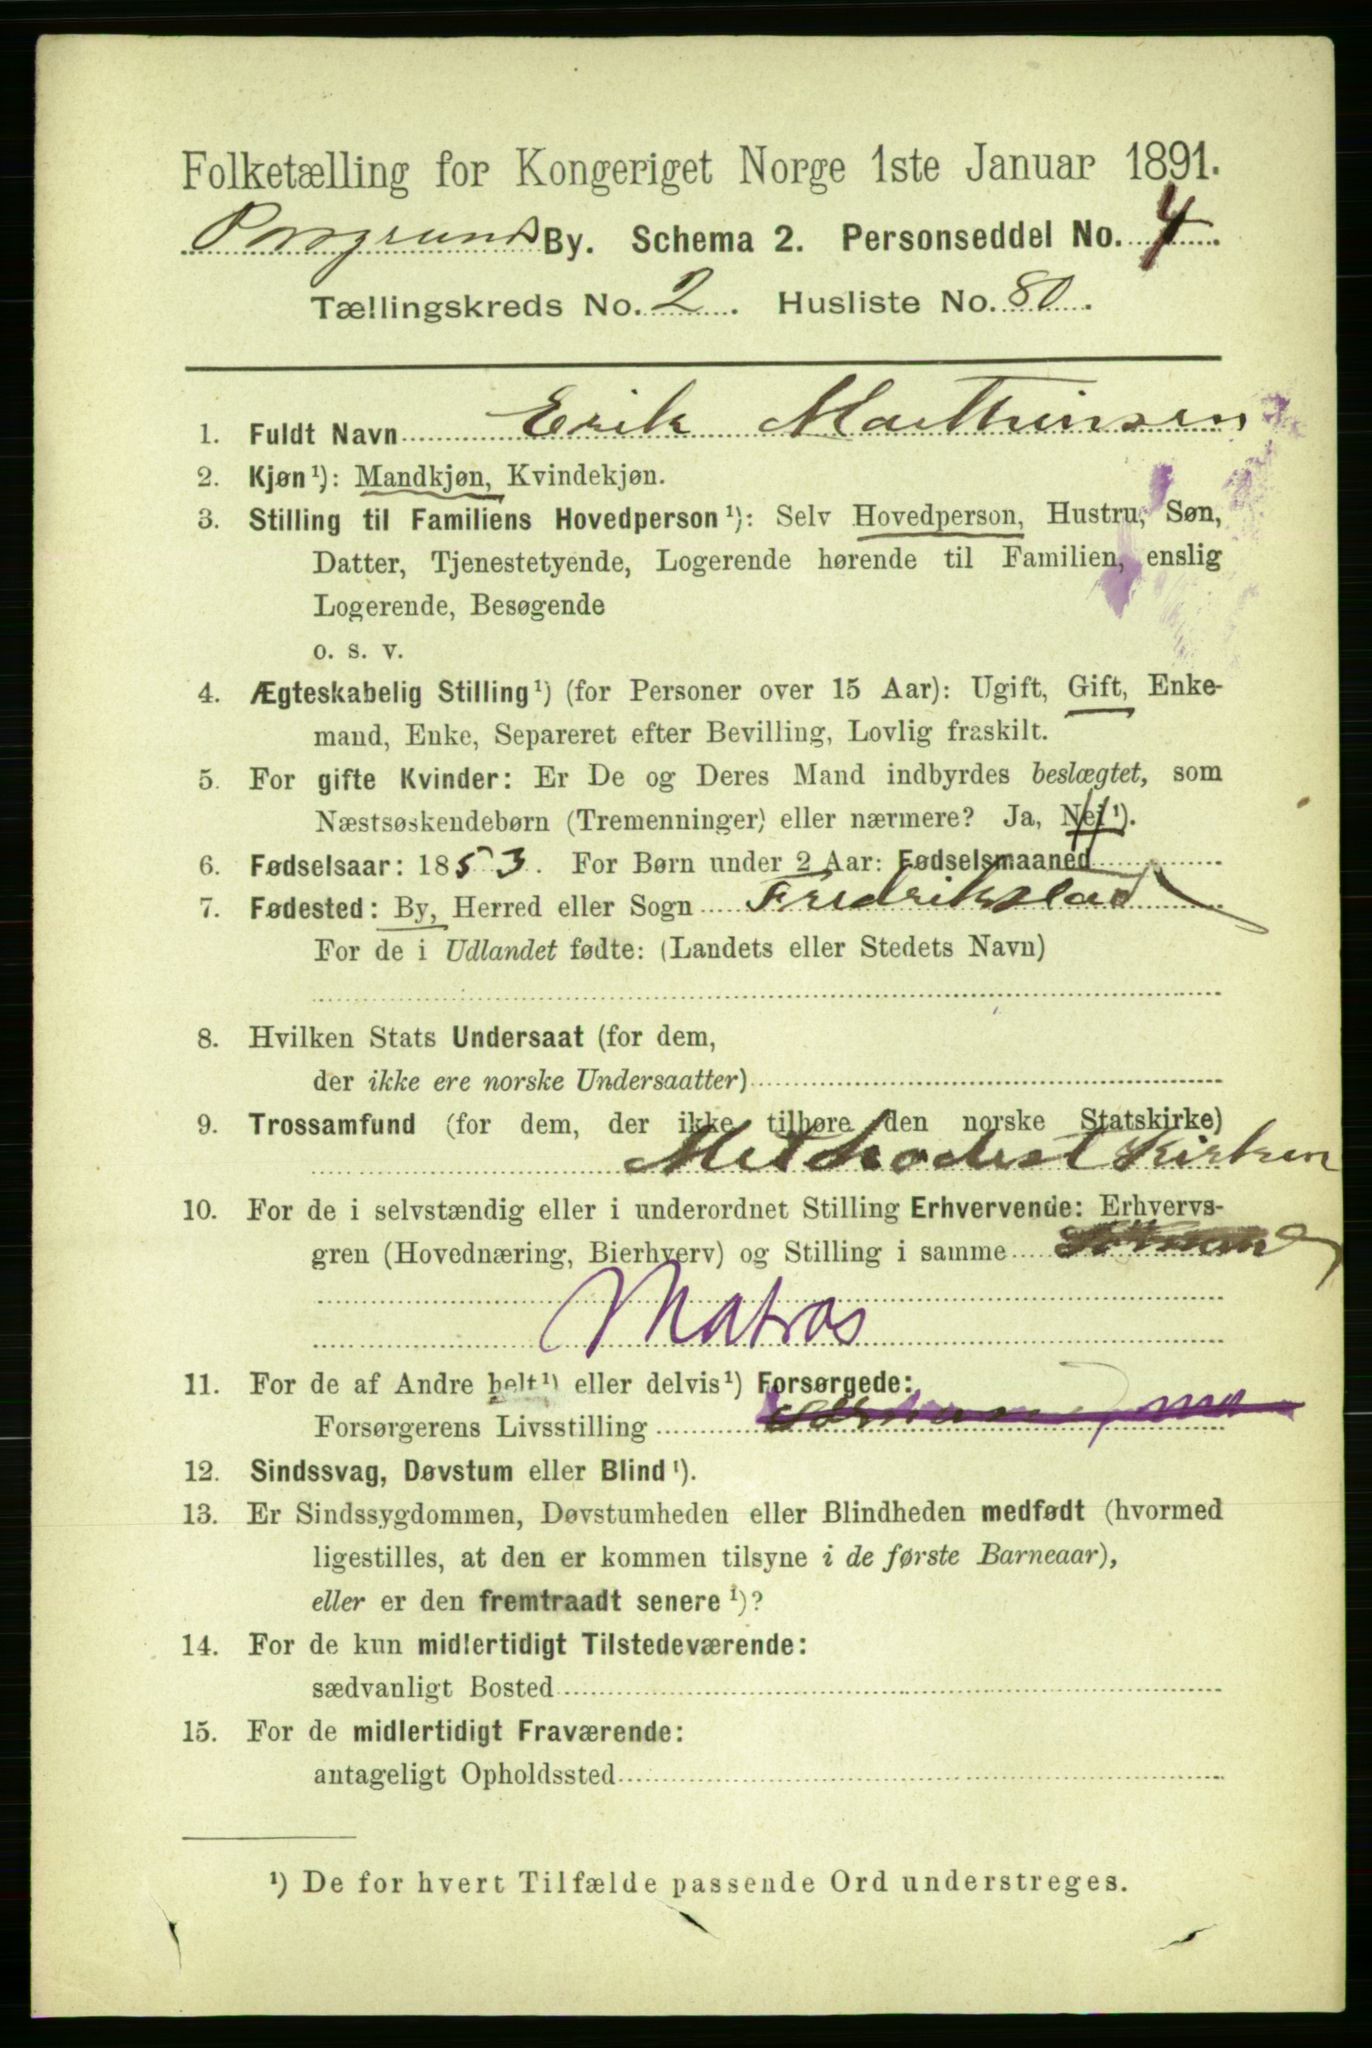 Folketælling for Kongeriget Norge 1ste Januar 1891.
Porsgrunds By. Schema 2. Personseddel No. 4
Tællingskreds No. 2. Husliste No. 80.
1. Fuldt Navn Erik Mathinsen
2. Kjøn¹): Mandkjøn, Kvindekjøn.
3. Stilling til Familiens Hovedperson¹): Selv Hovedperson, Hustru, Søn,
Datter, Tjenestetyende, Logerende hørende til Familien, enslig
Logerende, Besøgende
o. s. v.
4. Ægteskabelig Stilling¹) (for Personer over 15 Aar): Ugift, Gift, Enke-
mand, Enke, Separeret efter Bevilling, Lovlig fraskilt.
5. For gifte Kvinder: Er De og Deres Mand indbyrdes beslægtet, som
Næstsøskendebørn (Tremenninger) eller nærmere? Ja, Nei¹).
6. Fødselsaar: 1853. For Børn under 2 Aar: Fødselsmaaned
7. Fødested: By, Herred eller Sogn Fredrikstad
For de i Udlandet fødte: (Landets eller Stedets Navn)
8. Hvilken Stats Undersaat (for dem,
der ikke ere norske Undersaatter)
9. Trossamfund (for dem, der ikke tilhøre den norske Statskirke)
Methodist Kirken
10. For de i selvstændig eller i underordnet Stilling Erhvervende: Erhvervs-
gren (Hovednæring, Bierhverv) og Stilling i samme
Matros
11. For de af Andre helt¹) eller delvis¹) Forsørgede:
Forsørgerens Livsstilling
12. Sindssvag, Døvstum eller Blind¹).
13. Er Sindssygdommen, Døvstumheden eller Blindheden medfødt (hvormed
ligestilles, at den er kommen tilsyne i de første Barneaar),
eller er den fremtraadt senere¹)?
14. For de kun midlertidigt Tilstedeværende:
sædvanligt Bosted
15. For de midlertidigt Fraværende:
antageligt Opholdssted
¹) De for hvert Tilfælde passende Ord understreges.